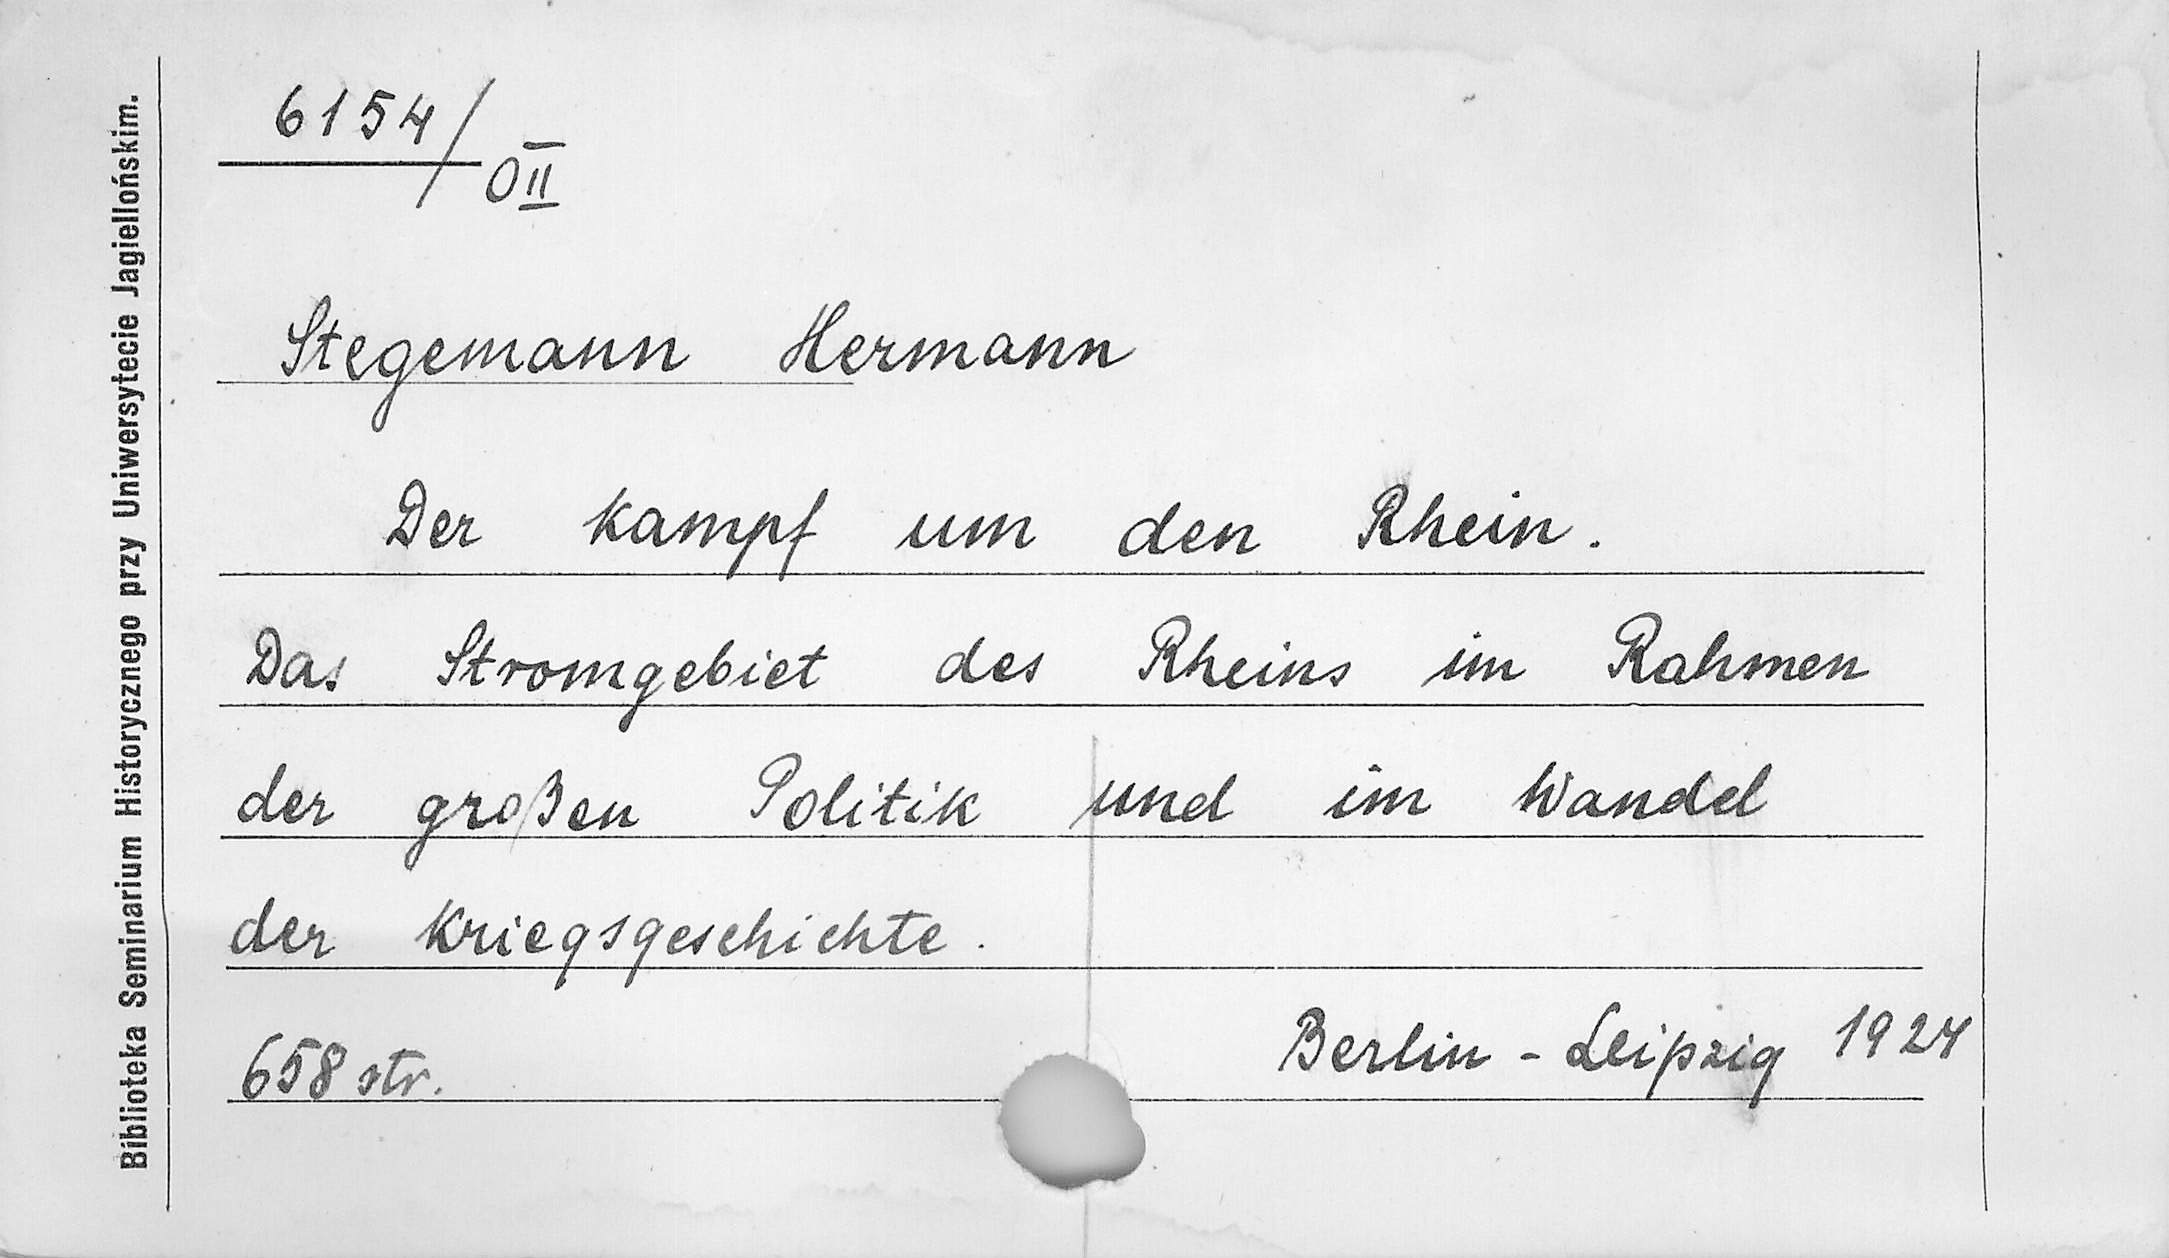 6154/
OII
Stegemann Hermann
Der Kampf um den Rhein.
Das Stromgebiet des Rheins im Rahmen
der großen Politik und im Wandel
der Kriegsgeschichte.
658 str.
Berlin - Leipzig 1924
Biblioteka Seminarium Historycznego przy Uniwersytecie Jagiellońskim.